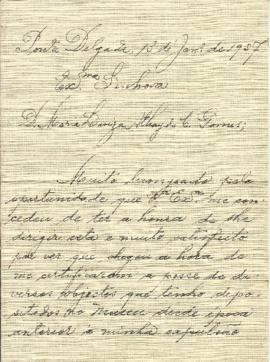 Ponta Delgada, 13 de Jan.º de 1957
Ex.ma Senhora
D. Maria Luiza Athayde C. Gomes,
Muito lisongeado pela
oportunidade que V.ª Ex.ª me con-
cedeu de ter a honra de lhe
dirigir esta e muito satisfeito
por ver que chegou a hora de
me certificarem a posse de di-
versos objectos que tenho depo-
sitados no Museu desde epoca
anterior á minha expulsão